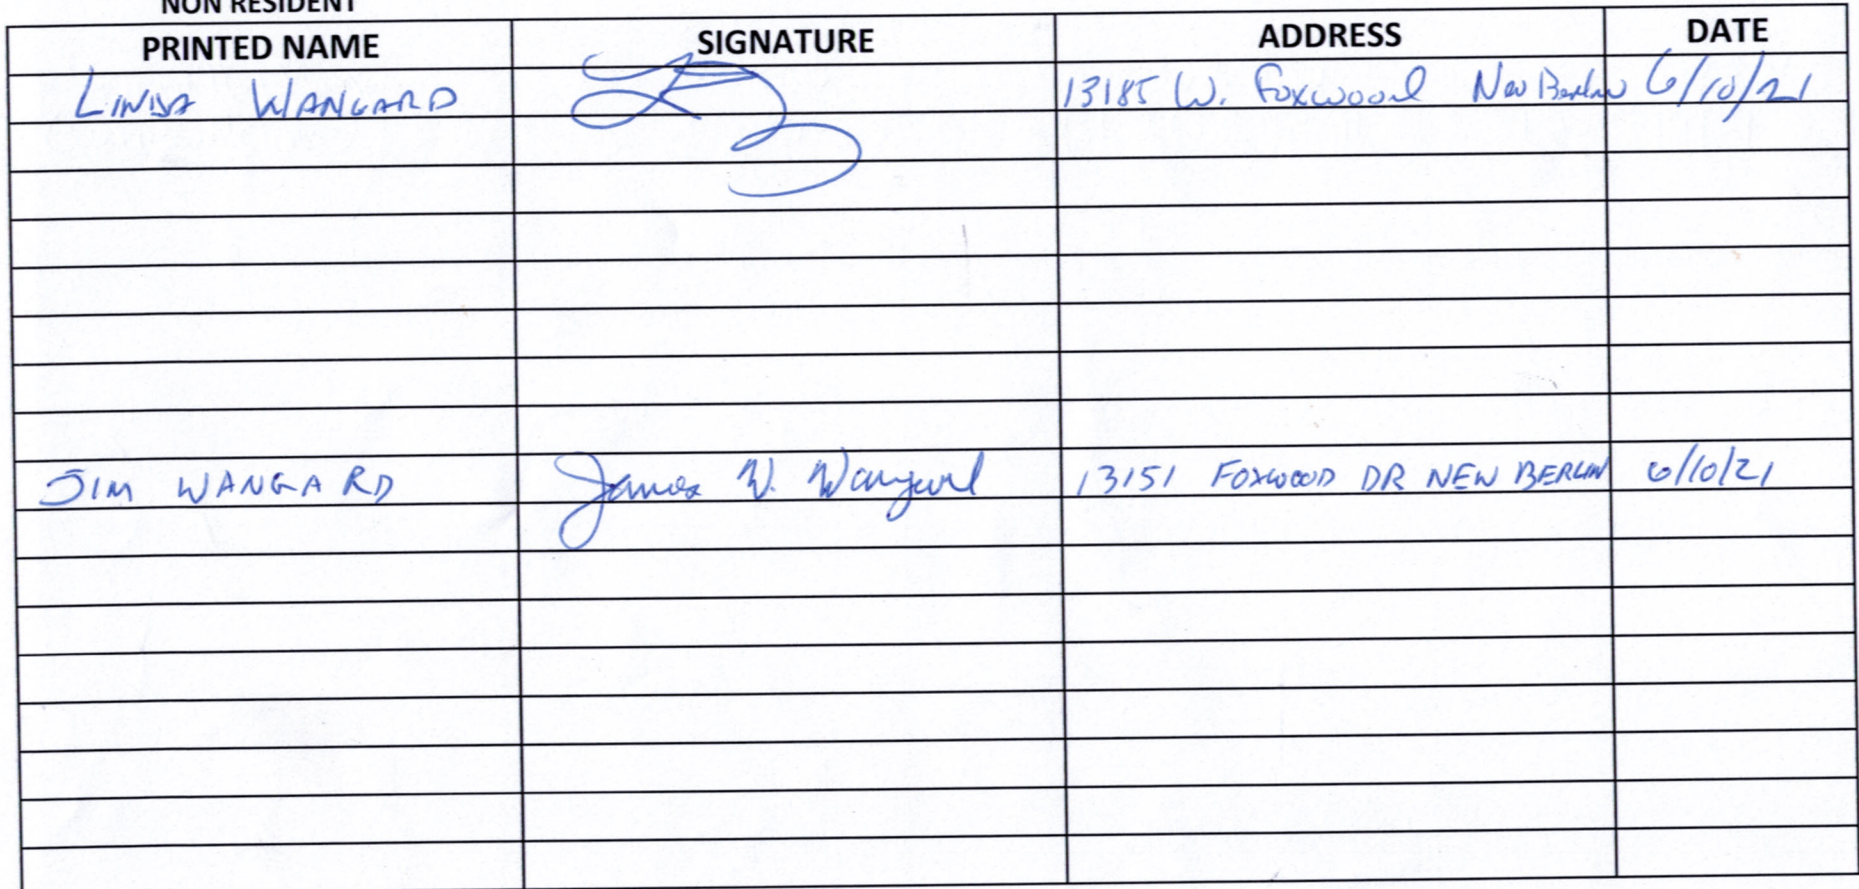 NON RESIDENT
PRINTED NAME SIGNATURE ADDRESS DATE
LINDA WANGARD 13185 W. Foxwood New Berlin 6/10/21
JIM WANGARD James W. Wangard 13151 FOXWOOD DR NEW BERLIN 6/10/21